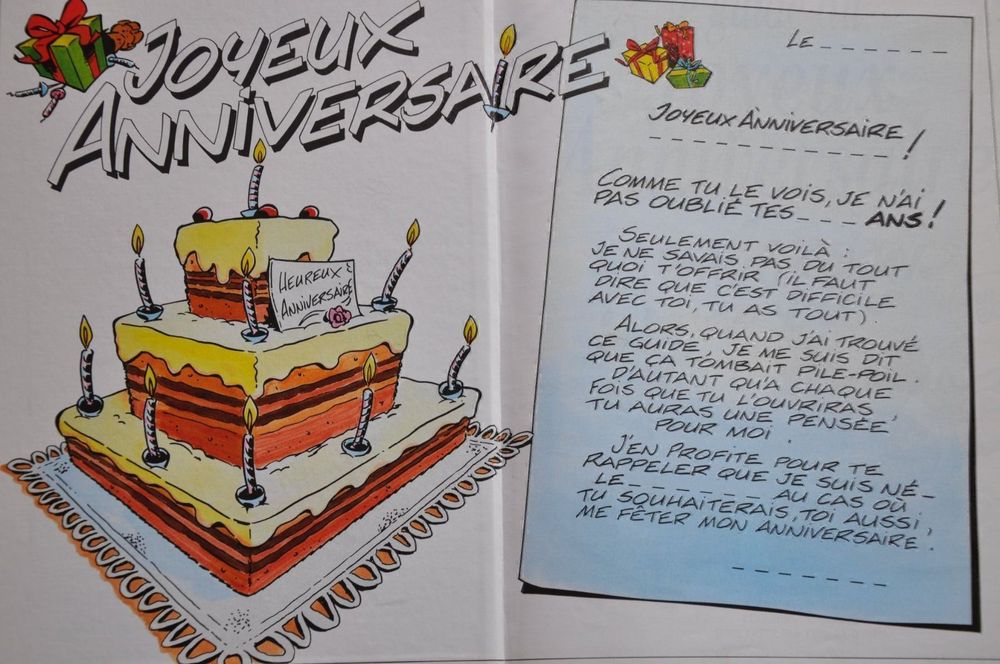 JOYEUX
ANNIVERSAIRE
HEUREUX
ANNIVERSAIRE
LE _ _ _ _ _ _ _
JOYEUX ANNIVERSAIRE
_ _ _ _ _ _ _ _ _ _ _ _ !
COMME TU LE VOIS, JE N'AI
PAS OUBLIÉ TES _ _ _ ANS !
SEULEMENT VOILÀ :
JE NE SAVAIS PAS DU TOUT
QUOI T'OFFRIR (IL FAUT
DIRE QUE C'EST DIFFICILE
AVEC TOI, TU AS TOUT).
ALORS, QUAND J'AI TROUVÉ
CE GUIDE, JE ME SUIS DIT
QUE ÇA TOMBAIT PILE-POIL.
D'AUTANT QU'A CHAQUE
FOIS QUE TU L'OUVRIRAS,
TU AURAS UNE PENSÉE
POUR MOI.
J'EN PROFITE POUR TE
RAPPELER QUE JE SUIS NÉ_
LE _ _ _ _ _ _ _ AU CAS OÙ
TU SOUHAITERAIS, TOI AUSSI,
ME FÊTER MON ANNIVERSAIRE.
_ _ _ _ _ _ _ _